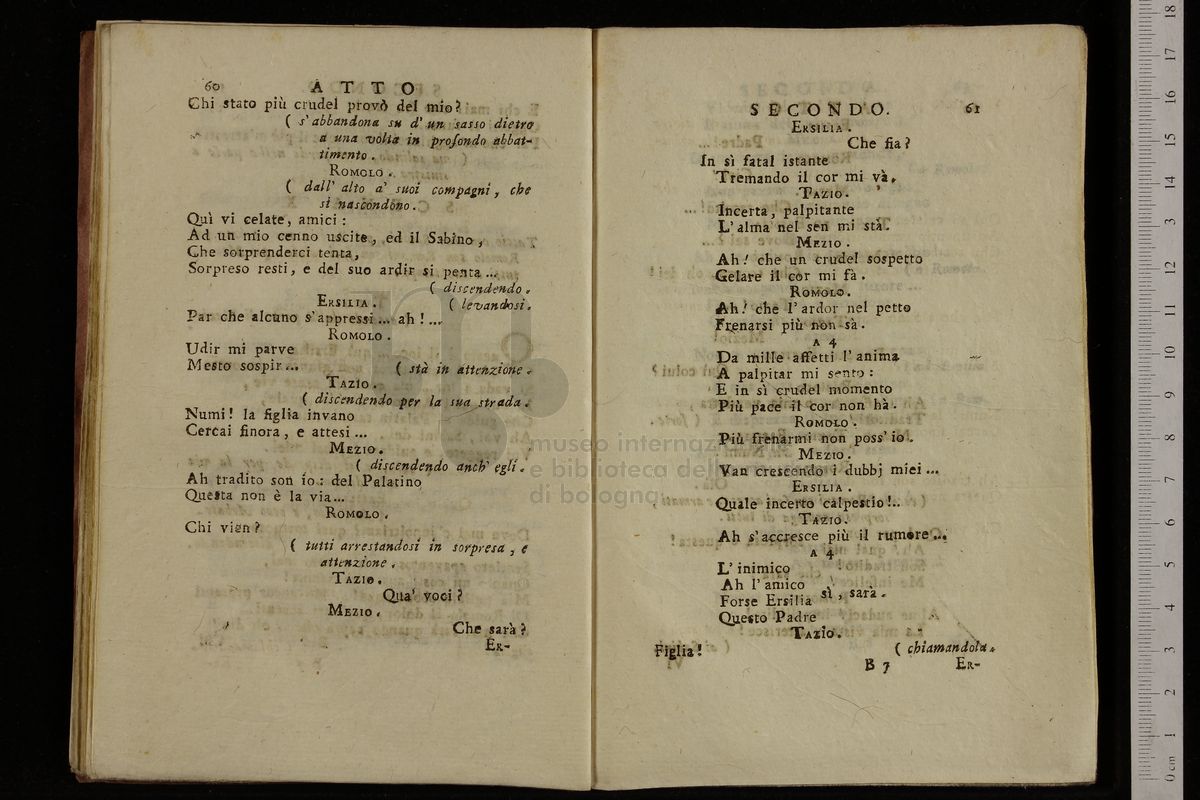 60 ATTO
Chi stato più crudel provò del mio?
( s' abbandona su d' un sasso dietro
a una volta in profondo abbat-
timento.
ROMOLO.
( dall' alto a' suoi compagni, che
si nascondono.
Quì vi celate, amici:
Ad un mio cenno uscite, ed il Sabino,
Che sorprenderci tenta,
Sorpreso resti, e del suo ardir si penta...
( discendendo.
ERSILIA. ( levandosi.
Par che alcuno s'appressi... ah!...
ROMOLO.
Udir mi parve
Mesto sospir... ( stà in attenzione.
TAZIO.
( discendendo per la sua strada.
Numi! la figlia invano
Cercai finora, e attesi...
MEZIO.
( discendendo anch' egli.
Ah tradito son io: del Palatino
Questa non è la via...
ROMOLO.
Chi vien?
( tutti arrestandosi in sorpresa, e
attenzione.
TAZIO.
Qua' voci?
MEZIO.
Che sarà?
ER-
SECONDO. 61
ERSILIA.
Che fia?
In sì fatal istante
Tremando il cor mi và.
TAZIO.
Incerta, palpitante
L'alma nel sen mi stà.
MEZIO.
Ah! che un crudel sospetto
Gelare il cor mi fà.
ROMOLO.
Ah! che l'ardor nel petto
Frenarsi più non sà.
A 4
Da mille affetti l'anima
A palpitar mi sento:
E in sì crudel momento
Più pace il cor non hà.
ROMOLO.
Più frenarmi non poss' io.
MEZIO.
Van crescendo i dubbj miei...
ERSILIA.
Quale incerto calpestio!..
TAZIO.
Ah s'accresce più il rumore...
A 4
L' inimico
Ah l' amico
Forse Ersilia sì, sarà.
Questo Padre
TAZIO.
Figlia! ( chiamandola.
B 7 ER-
museo internazionale
e biblioteca della musica
di bologna